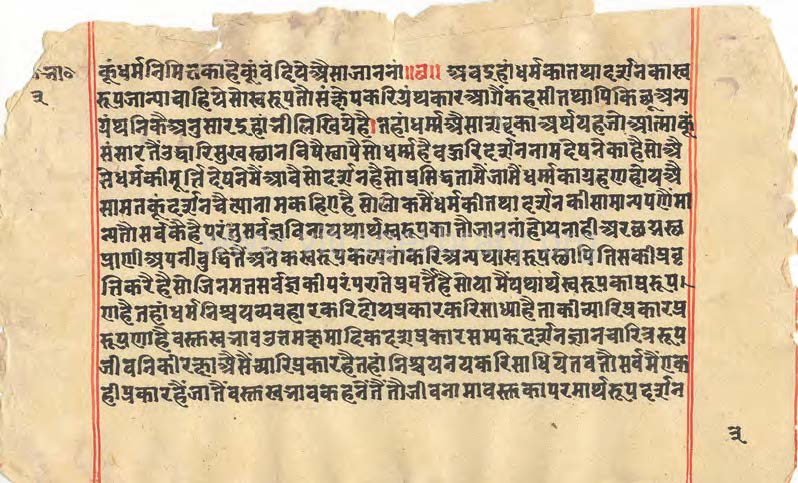 कूं धर्मनिमित्तका है कूं वंदिये ऐसा जाननां॥२॥ अब इहां धर्मका तथा दर्शनका स्व
रूप जान्या चाहिये सो स्वरूप तौ संक्षेपकरि ग्रंथकार आगैं कहसी तथापि किछू अन्य
ग्रंथनिकै अनुसार इहां भी लिखिये है। तहां धर्म्म ऐसा शब्दका अर्थ यह जो आत्माकूं
संसारतैं उद्धारि सुखस्थानविषै स्थापै सो धर्म्म है बहुरि दर्शन नाम देषनेका है सो ऐ
सें धर्मकी मूर्त्ति देषनेमैं आवै सो दर्शन है सो प्रसिद्धतामैं जामैं धर्मका ग्रहण होय ऐ
सा मतकूं दर्शन ऐसा नामकहिए है सो लोकमैं धर्मकी तथा दर्शनकी सामान्यपणैं मा
न्य तौ सर्वकै है परंतु सर्वज्ञ विना यथार्थ स्वरूपका तौ जाननां होय नाही अर छद्मस्थ
प्राणी अपनी बुद्धितैं अनेक स्वरूप कल्पनांकरि अन्यथा स्वरूप स्थापि तिसकी प्रवृ
त्ति करै है सो जिनमत सर्वज्ञकी परंपरातैं प्रवर्त्तै है सो यामैं यथार्थ स्वरूपका प्ररूप
णा है तहां धर्म निश्चय व्यवहारकरि दोय प्रकारकरि साध्या है ताकी च्यारि प्रकार प्र
रूपणा है वस्तुस्वभाव उत्तमक्षमादिक दश प्रकार सम्यक्दर्शनज्ञानचारित्ररूप
जीवनिकी रक्षा ऐसैं च्यारि प्रकार है तहां निश्चयनयकरि साधिये तब तौ सर्वमैं एक
ही प्रकार है जातैं वस्तुस्वभाव कहनेतैं तौ जीवनामा वस्तुका परमार्थरूप दर्शन